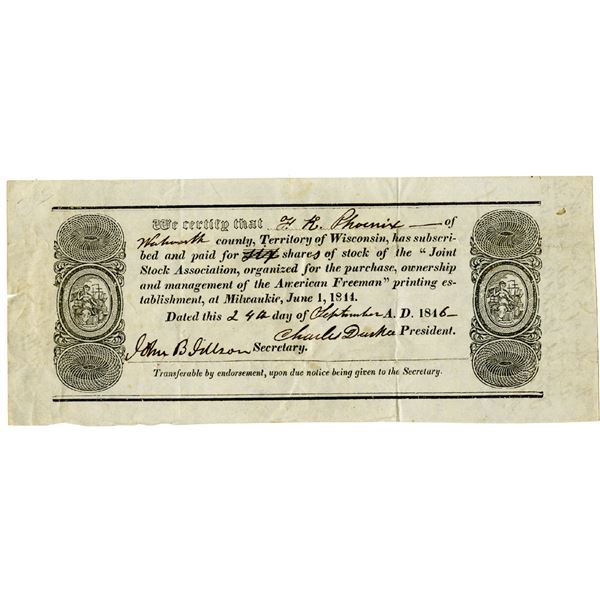 We certify that F. K. Phoenix of
Walworth county, Territory of Wisconsin, has subscri-
bed and paid for shares of stock of the "Joint
Stock Association, organized for the purchase, ownership
and management of the American Freeman" printing es-
tablishment, at Milwaukie, June 1, 1844.
Dated this 24th day of September A. D. 1846
Charles Durkee President.
John B Jillson Secretary.
Transferable by endorsement, upon due notice being given to the Secretary.